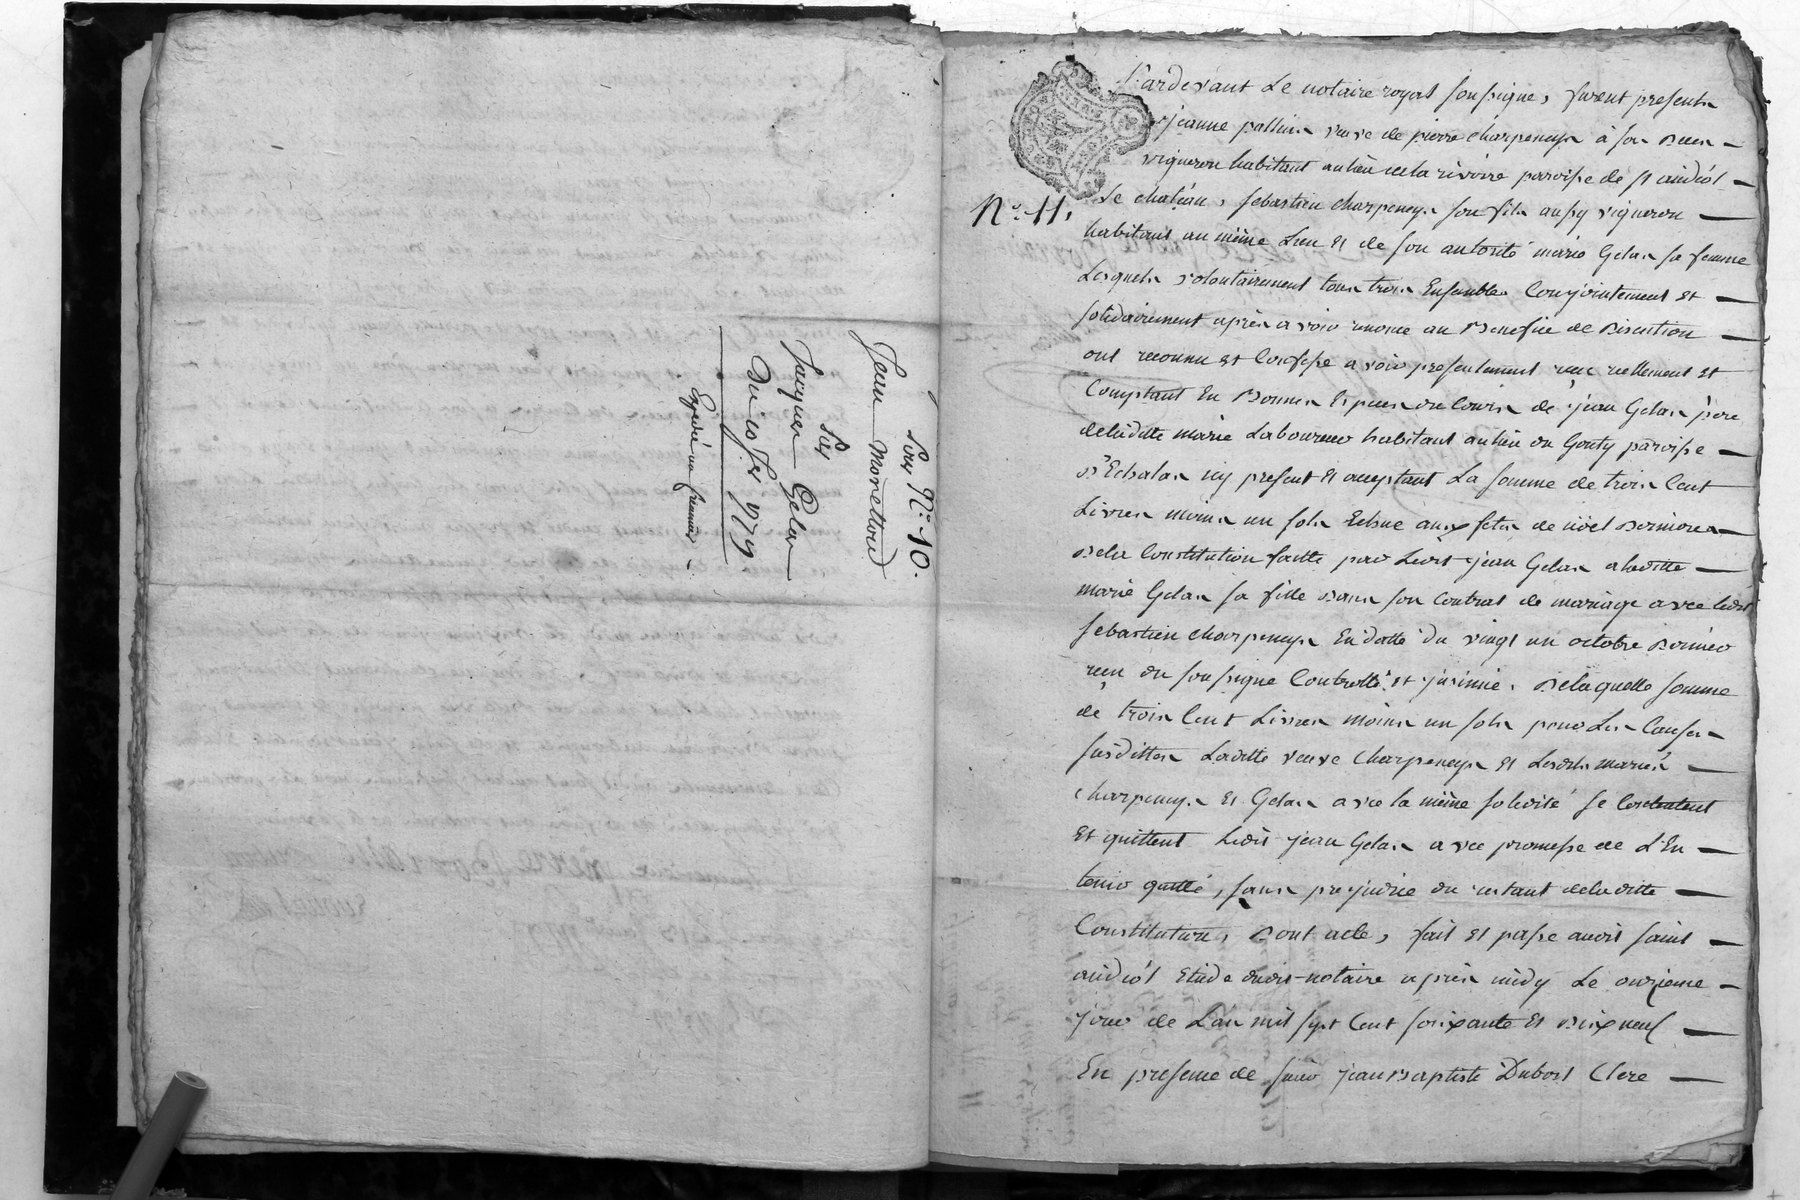 Sous N.° 10.
Jean Monettoud
Sur
Jacques Gelas
Du 10 f.er 1779
Expédié au premier
N.° 11.
Pardevant Le notaire royal soussigné, furent presents
jeanne veuve de pierre charpeneys à son decès
vigneron habitant au lieu de la rivoire paroisse de st andéol
Le chateau, sebastien charpeneys son fils aussy vigneron
habitant au même Lieu et de son autorité marie Gelas sa femme
Lesquels volontairement tous trois Ensembles Conjointement et
solidairement après avoir renoncé au Benefice de Discution
ont reconnu et Confessé avoir presentement recu reellement et
Comptant En Bonnes Especes du Cours de jean Gelas père
deladitte marie Laboureur habitant au lieu du Gouty paroisse
D'Echalas icy present et acceptant La somme de trois Cent
Livres moins un sols Echue aux fetes de nöel Dernieres
Dela Constitution faitte par Ledit jean Gelas a laditte
marie Gelas sa fille Dans son Contrat de mariage avec ledit
sebastien charpeneys En datte du vingt un octobre Dernier
recu du soussigné Controllé et jnsinué. De laquelle somme
de trois Cent Livres moins un sols pour Les Causes
susdittes Laditte veuve Charpeneys et Lesdits mariés
charpeneys et Gelas avec la même solidité se Contentent
Et quittent Ledit jean Gelas avec promesse de L'En
tenir quitte, sans prejudice du restant deladitte
Constitution, Dont acte, fait et passé audit saint
andéol Etude dudit notaire après midy Le onzieme
jour de L'an mil sept Cent soixante et Dix neuf
En presence de sieur jean Baptiste Dubost Clerc